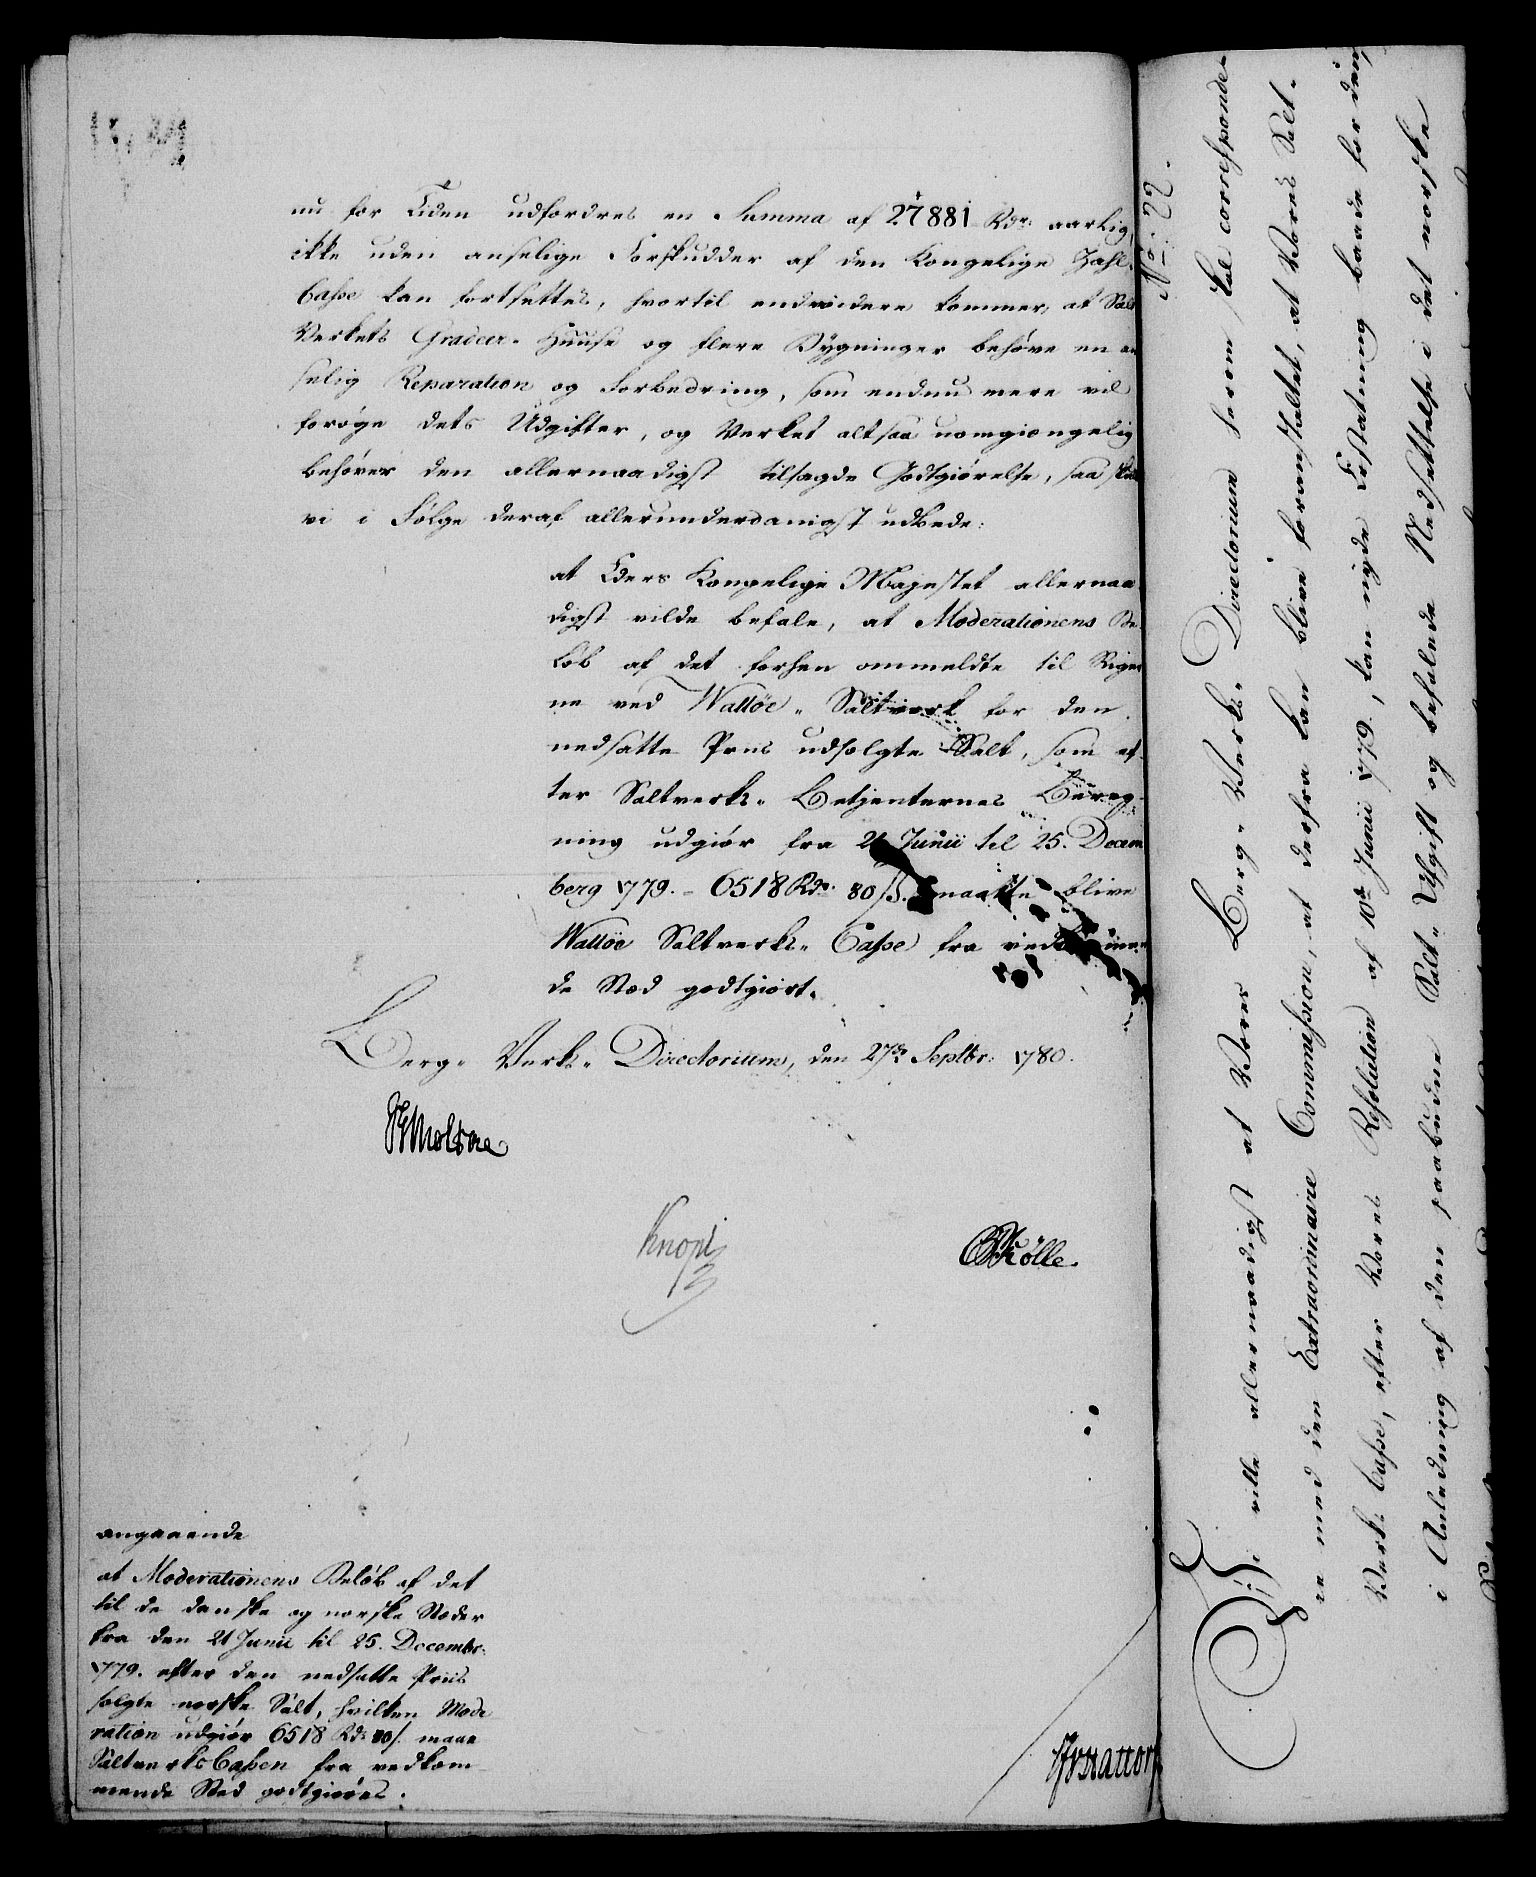 nu for Tiden udfordres en Summa af 27881 Rdr: aarlig,
ikke uden anselige Forskudder af den Kongelige Zahl-
Casse kan fortsettes, hvortil endvidere kommer, at Salt
Verkets Gradeer- Huuse og flere Bygninger behøve en an
selig Reparation og Forbedring, som endnu mere vil
forøge dets Udgifter, og Verket altsaa uomgiængelig
behøver den allernaadigst tilsagde Godtgiørelse, saa skal
vi i Følge deraf allerunderdanigst udbede:
at Eders Kongelige Majestet allernaa
digst vilde befale, at Moderationens Be-
løb af det forhen ommeldte til Riger
ne ved Walløe- Saltverk for den
nedsatte Priis udsolgte Salt, som ef-
ter Saltverks- Betjenternes Bereg-
ning udgiør fra 21 Junii til 25. Decem
berg 1779. - 6518 Rdr. 80 ß. maatte blive
Walløe Saltverks- Casse fra vedkommen
de Sted godtgiort.
Berg- Verks- Directorium, den 27de Septbr: 1780.
Knopf
angaaende
at Moderationens Beløb af det
til de danske og norske Steder
fra den 21 Junii til 25. Decembr:
1779. efter den nedsatte Priis
solgte norske Salt, hvilken Mode
ration udgiør 6518 Rdr 80 ß. maae
Saltverks Cassen fra vedkom-
mende Sted godtgiøres.
No: 22.
Vi ville allernaadigst at Vores Berg- Verks- Directorium herom skal corresponde-
re med den Extraordinaire Commission, at derfra kan blive foranstaltet, at Vores Salt-
Verks Casse, efter Vores Resolution af 10de Junii 1779, kan nyde Erstatning baade for den
i Anledning af den paabudne Salt- Afgift og befalede Nedsettelse i det norske